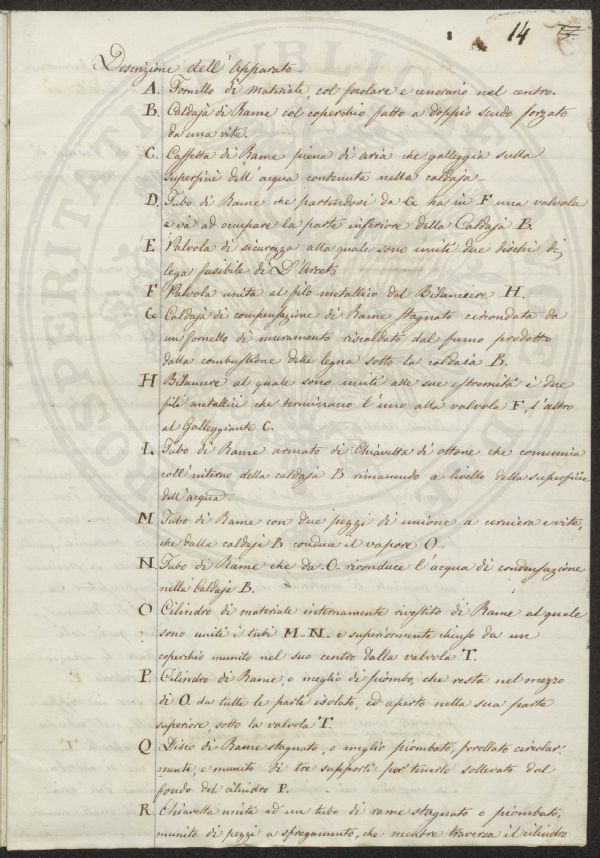 14
Descrizione dell'Apparato
A. Fornello di Materiale, col focolare e cenerario nel centro.
B. Caldaja di Rame col coperchio fatto a doppio scudo forzato
da una vite.
C. Cassetta di Rame piena di aria che galleggia sulla
superficie dell'acqua contenuta nella caldaja
D. Tubo di Rame che partendosi da G ha in F una valvola
e và ad occupare la parte inferiore della Caldaja B.
E Valvola di sicurezza alla quale sono uniti due dischi di
lega fusibile di D'Arcet
F Valvola unita al filo metallico del Bilanciere H.
G Caldaja di compensazione di Rame stagnato circondata da
un fornello di muramento riscaldato dal fumo prodotto
dalla combustione delle legna sotto la caldaia B.
H Bilanciere al quale sono uniti alle sue estremità i due
fili metallici che terminano l'uno alla valvola F, l'altro
al Galleggiante C.
I. Tubo di Rame armato di Chiavetta di ottone che comunica
coll'interno della caldaja B rimanendo a livello della superficie
dell'acqua.
M. Tubo di Rame con due pezzi di unione a cerniera e vite,
che dalla caldaja B conduce il vapore O.
N. Tubo di Rame che da O. riconduce l'acqua di condensazione
nella Caldaja B.
O Cilindro di materiale internamente rivestito di Rame al quale
sono uniti i tubi M-N. e superiormente chiuso da un
coperchio munito nel suo centro dalla valvola T.
P. Cilindro di Rame, o meglio di piombo, che resta nel mezzo
di O. da tutte le parti isolato, ed aperto nella sua parte
superiore, sotto la valvola T.
Q Disco di Rame stagnato, o meglio piombato, forellato circolar-
mente, e munito di tre supporti per tenerlo sollevato dal
fondo del cilindro P.
R. Chiavetta unita ad un tubo di rame stagnato o piombato,
munito di pezzi a spregamento, che mentre traversa il cilindro